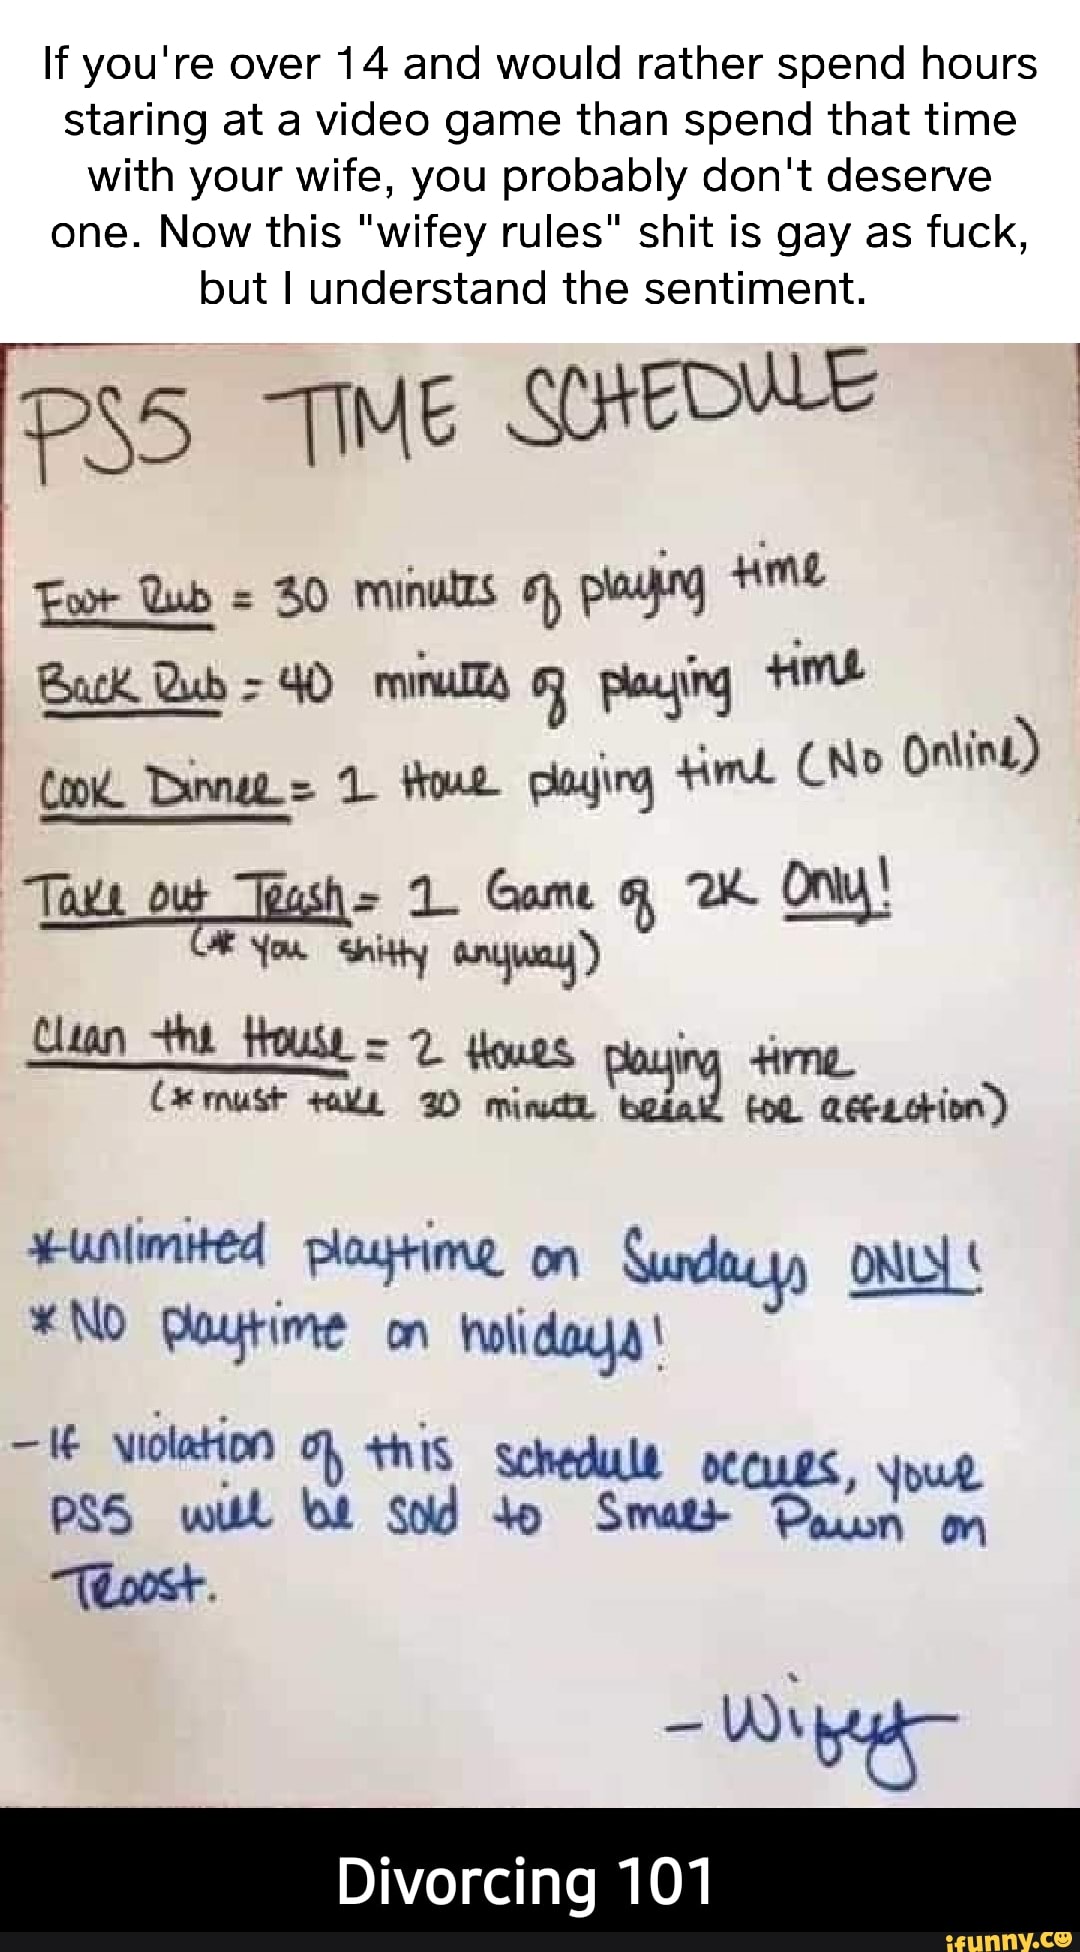 If you're over 14 and would rather spend hours
staring at a video game than spend that time
with your wife, you probably don't deserve
one. Now this "wifey rules" shit is gay as fuck,
but I understand the sentiment.
PS5 TIME SCHEDULE
Foot Rub = 30 minutes of playing time
Back Rub = 40 minutes of playing time
Cook Dinner = 1 Hour playing time (No Online)
Take out Trash = 1 Game of 2K Only!
(* You shitty anyway)
Clean the House = 2 Hours playing time
(* must take 30 minute break for affection)
* unlimited playtime on Sundays ONLY!
* No playtime on holidays!
- If violation of this schedule occurs, your
PS5 will be sold to Smart Pawn on
Troost.
- Wifey
Divorcing 101
ifunny.co